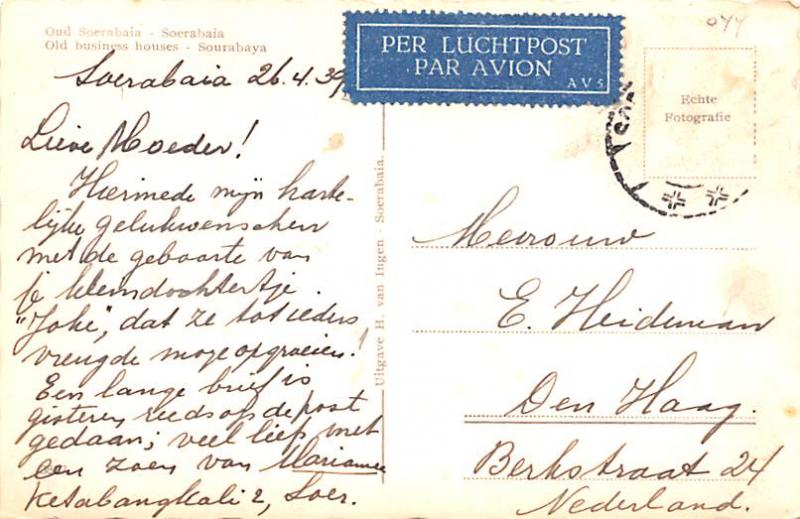 Oud Soerabaia - Soerabaia
Old business houses - Sourabaya
Soerabaia 26.4.39
Lieve Moeder!
Hiermede mijn harte-
lijke gelukwenschen
met de geboorte van
je kleindochtertje.
"Joke", dat ze tot ieders
vreugde moge opgroeien!
Een lange brief is
gisteren reeds op de post
gedaan; veel liefs met
een zoen van Marianne
Ketabangkali 2, Soer.
Uitgave H. van Ingen - Soerabaia.
PER LUCHTPOST
PAR AVION
AV5
Echte
Fotografie
Mevrouw
E. Heideman
Den Haag.
Berkstraat 24
Nederland.